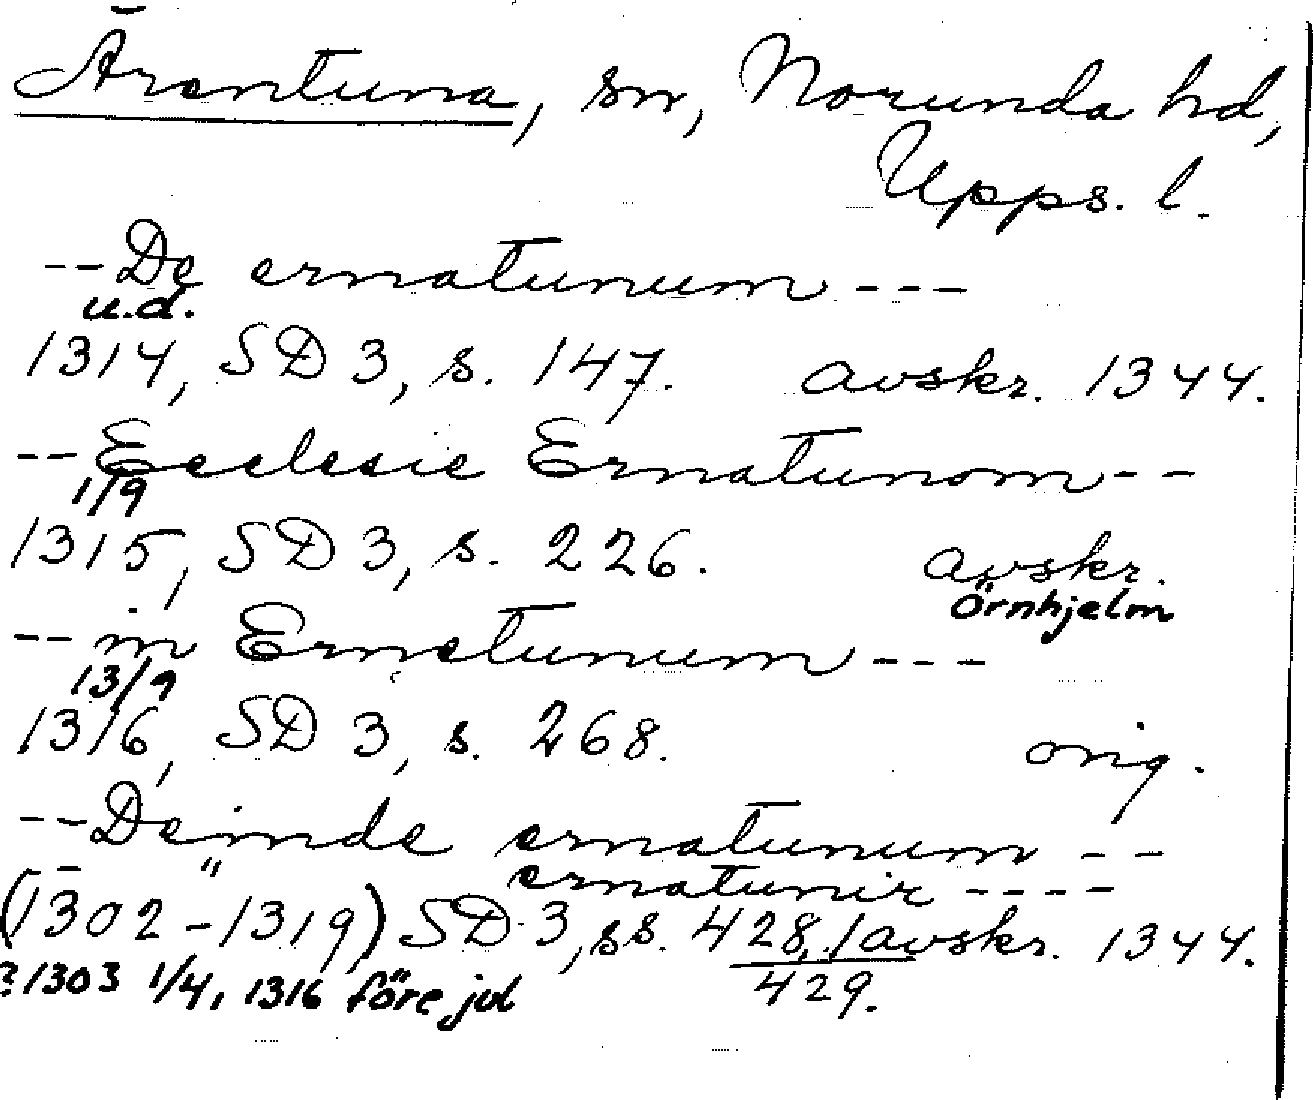 Ärentuna, sn, Norunda hd,
Upps. l.
--De ernatunum---
u.d.
1314, SD 3, s. 147. avskr. 1344.
--Ecclesie Ernatunom--
1/9
1315, SD 3, s. 226. avskr.
Örnhjelm
--in Ernetunum---
13/9
1316, SD 3, s. 268. orig.
--Deinde ernatunum--
-- " ernatunir----
(1302-1319) SD 3, ss. 428, /avskr. 1344.
429.
?1303 1/4, 1316 före jul